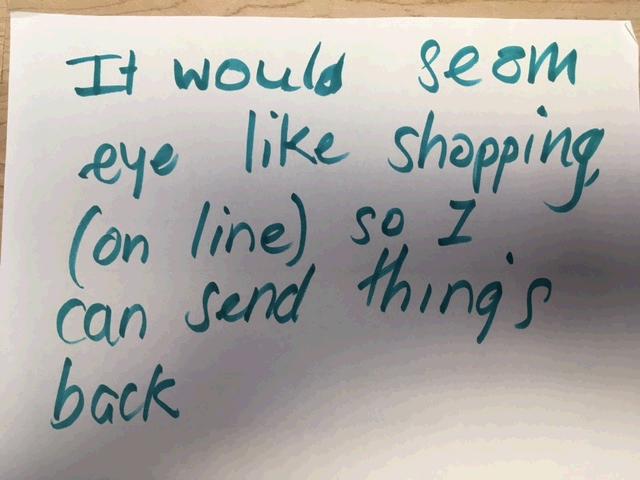 It would seom
eye like shopping
(on line) so I
can send thing's
back